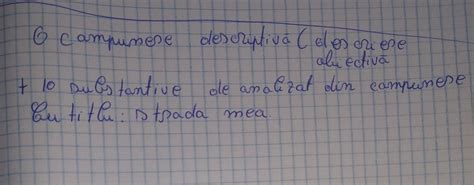 O campunere descriptivă (descriere
obiectivă
+ 10 substantive de analizat din campunere
Cu titlu: strada mea